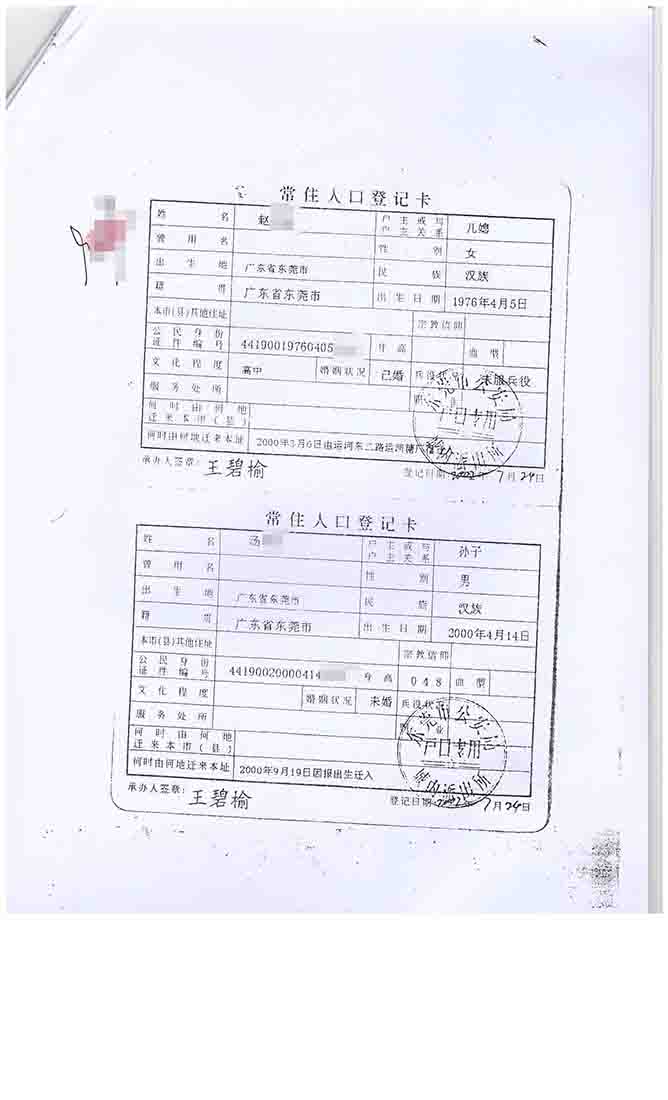 常住人口登记卡
姓名 赵 户主或与户主关系 儿媳
曾用名 性别 女
出生地 广东省东莞市 民族 汉族
籍贯 广东省东莞市 出生日期 1976年4月5日
本市(县)其他住址 宗教信仰
公民身份证件编号 44190019760405 身高 血型
文化程度 高中 婚姻状况 已婚 兵役状况 未服兵役
服务处所
何时由何地迁来本市(县)
何时由何地迁来本址 2000年3月6日由运河东二路运河
东莞市公安局
户口专用
承办人签章: 王碧榆 登记日期: 2002年7月24日
常住人口登记卡
姓名 汤 户主或与户主关系 孙子
曾用名 性别 男
出生地 广东省东莞市 民族 汉族
籍贯 广东省东莞市 出生日期 2000年4月14日
本市(县)其他住址 宗教信仰
公民身份证件编号 44190020000414 身高 048 血型
文化程度 婚姻状况 未婚 兵役状况
服务处所 职业
何时由何地迁来本市(县)
何时由何地迁来本址 2000年9月19日因报出生迁入
东莞市公安局
户口专用
承办人签章: 王碧榆 登记日期: 2002年7月24日